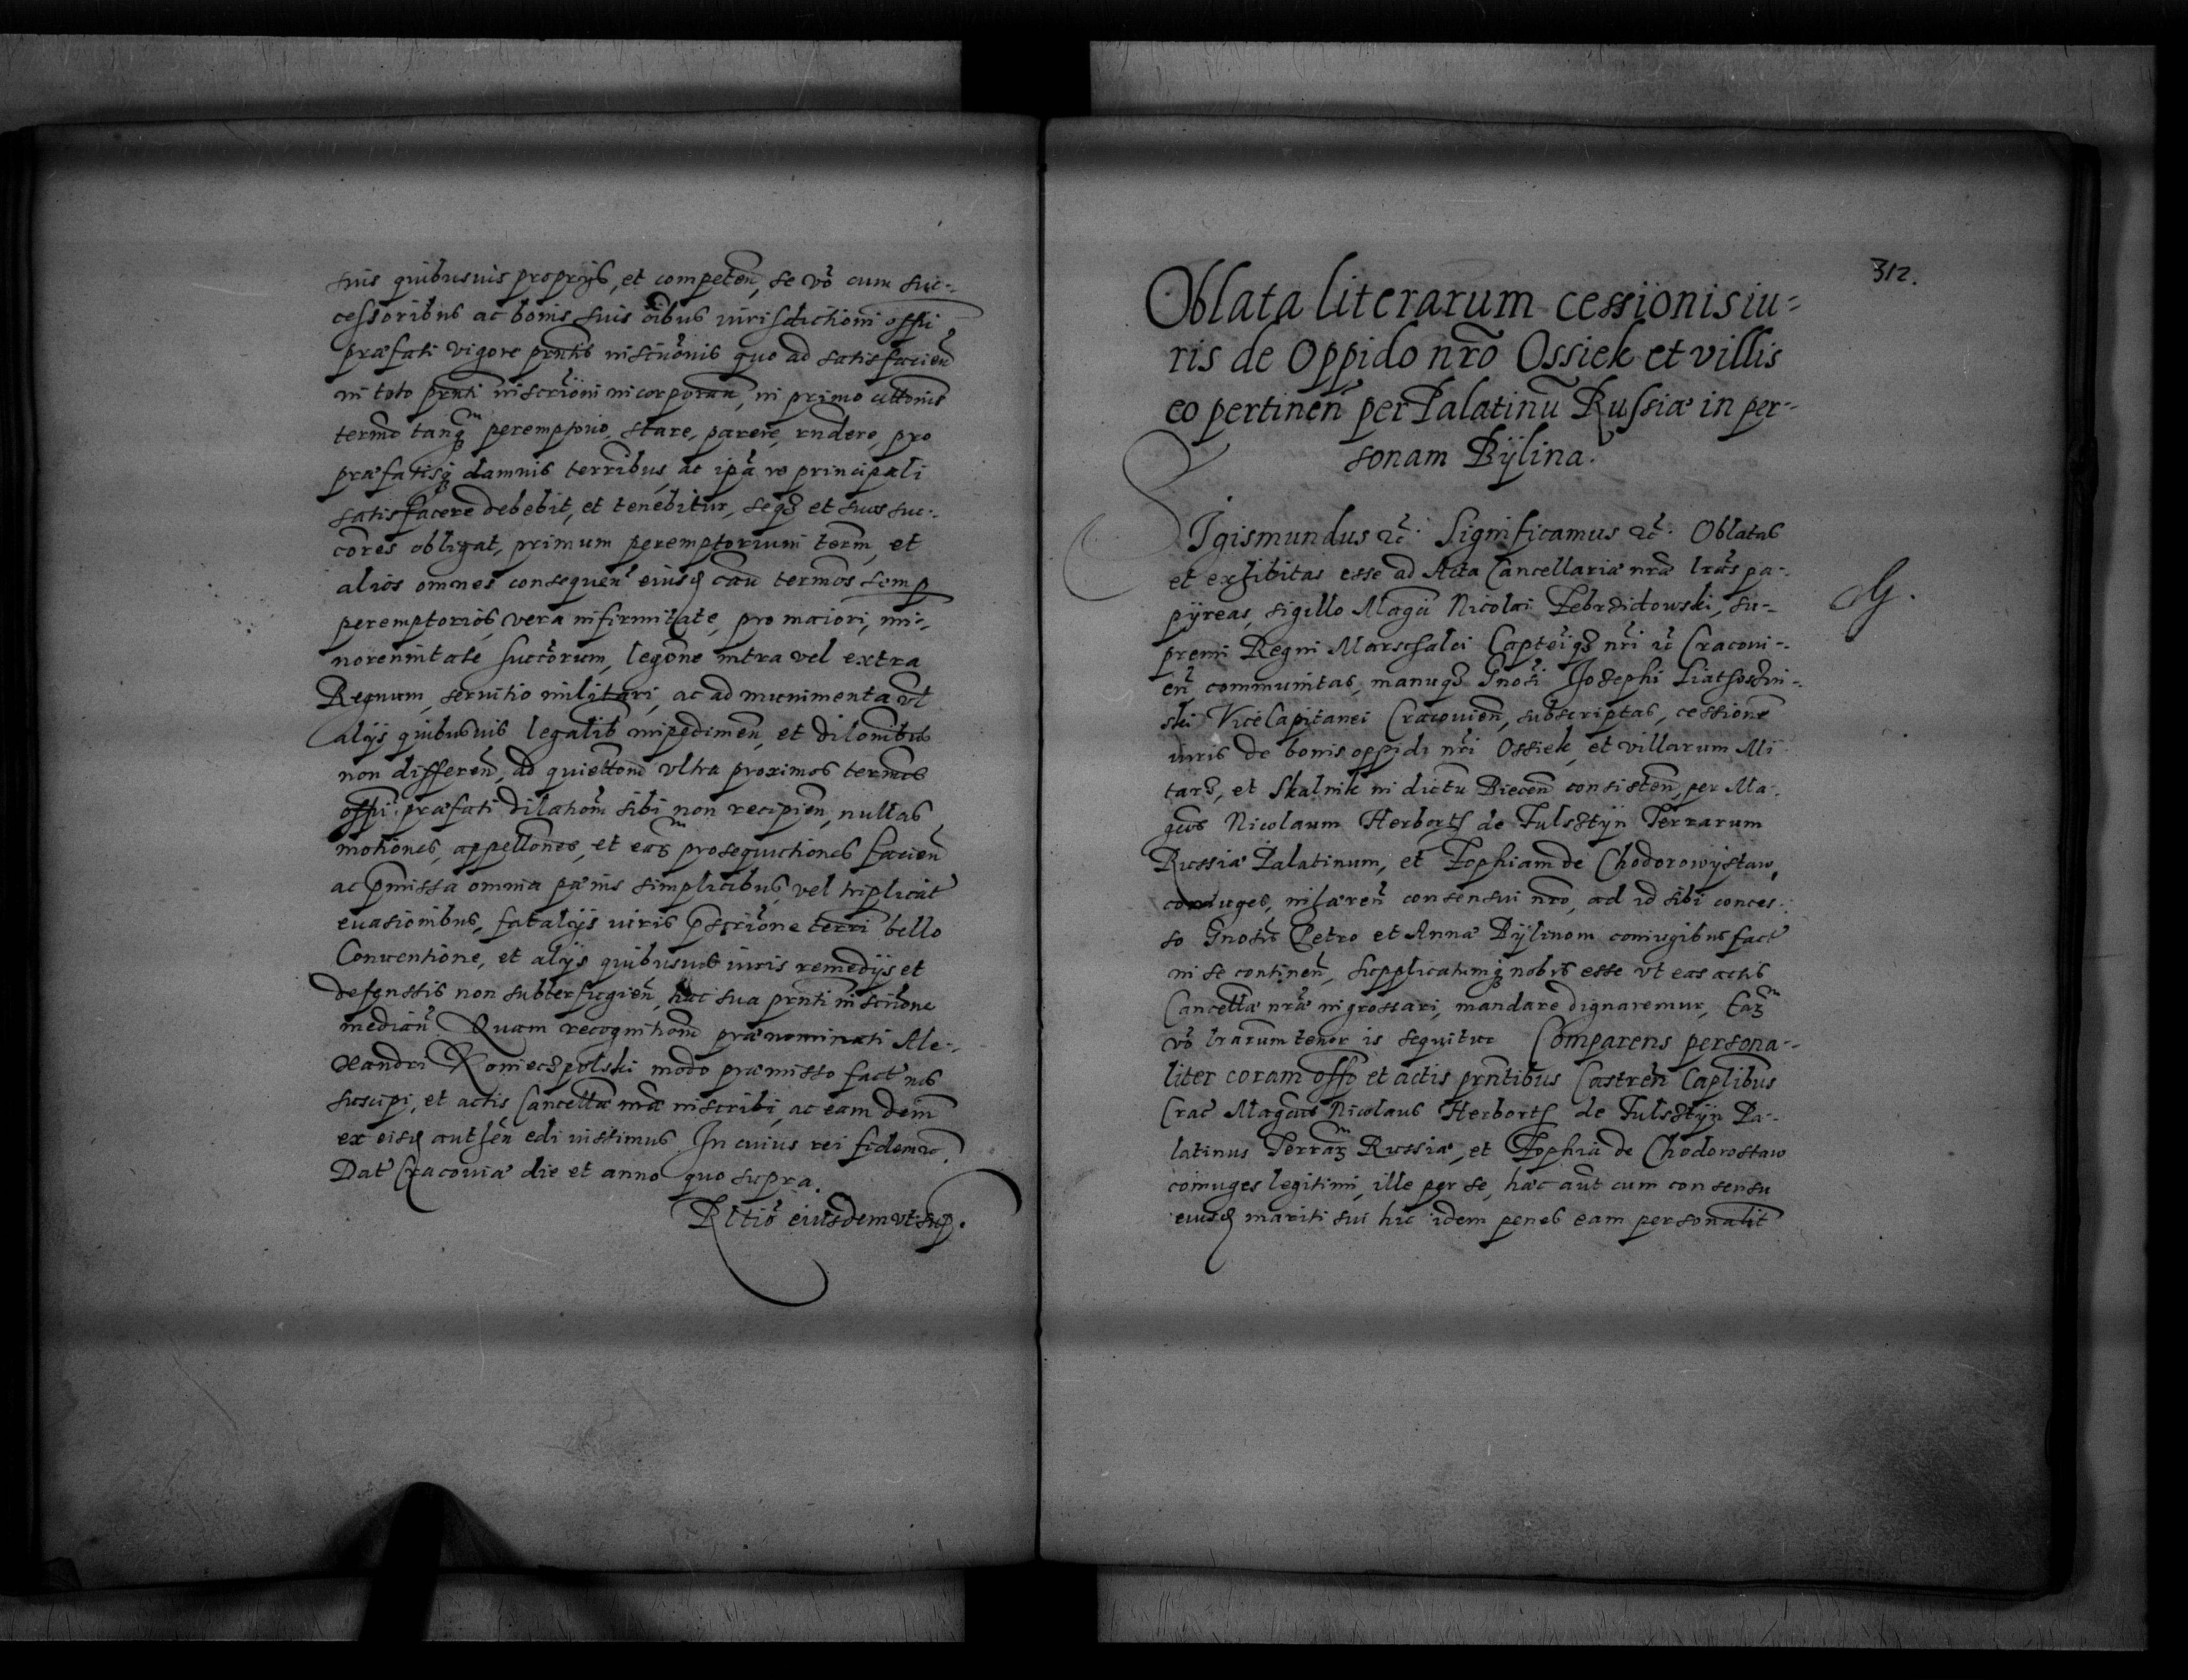 suis quibusuis proprijs, et competen̄, se vo᷑ cum suc-
cessoribus ac bonis suis oībus iurisdictioni offi̅
præfati vigore prn̄tis inscrīonis quo ad satisfacien̄
in toto prn̄ti inscrīoni incorporan̄, in primo cittonis
termō tanq̄ peremptorio, stare, parere, rn̄dere, pro
præfatisq̨ damnis terribus, ac ip̄a re principali
satisfacere debebit, et tenebitur, seqʒ et suos suc-
cōres obligat, primum peremptorium term̄, et
alios omnes consequen̄ eiusd̨ cāu termōs semp̱
peremptorios, vera infirmitate, pro maiori, mi-
norennitate succōrum, legōne intra vel extra
Regnum, seruitio militari, ac ad munimenta vl̄
alijs quibusuis legalib impedimen̄, et dilōnibus
non differen̄, ad quiettōnē vltra proximos termōs
offi̅ præfati dilationē sibi non recipien̄, nullas
motiones, appellōnes, et eaʒ prosequutiones facien̄
ac p̄missa omnia pænis simplicibus, vel triplicat
euasionibus, fatalijs iuris p̄scriōne terri bello
Conuentione, et alijs quibusuis iuris remedijs et
defenssis non subterfugien̄, hac sua prn̄ti inscrīone
median̄. Quam recognitionē prænominati Ale-
xandri Koniecʒpolski modo præmisso fact̄ nos
suscipi, et actis Cancellæ nræ inscribi, ac eam dem̄
ex eisd̨ authen̄ edi iussimus. In cuius rei fidem ꝛc̄.
Dat Cracouiæ die et anno quo supra.
Rltiō eiusdem vt sup̱.
312.
Oblata literarum cessionis iu-
ris de Oppido nr̄o Ossiek et villis
eo pertinen̄ per Palatinū Russiæ in per-
sonam Bÿlina.
Sigismundus ꝛc̄. Significamus ꝛc̄. Oblatas
et exhibitas esse ad Acta Cancellariæ nræ lrās pa-
pÿreas, sigillo Magci Nicolai Zebrzidowski, su-
premi Regni Marschalci Capteiqʒ nri ꝛc̄ Cracoui-
en̄, communitas, manuqʒ Gnosi Josephi
ski ViceCapitanei Cracouien̄, subscriptas, cessionē
iuris de bonis oppidi nri Ossiek, et villarum Mi
tarʒ, et Skalnik in distrū Biecen̄ consisten̄, per Ma-
gcos Nicolaum Herborth de Fulsztÿn Terrarum
Russiæ Palatinum, et Zophiam de Chodorowÿstaw,
coniuges, inhæren̄ consensui nr̄o, ad id sibi conces-
so Gnosis Petro et Annæ Bÿlinom coniugibus fact̄
in se continen̄, supplicatumq̨ nobis esse vt eas actis
Cancellæ nræ ingrossari, mandare dignaremur, Eaʒ
vo᷑ lrārum tenor is sequitur Comparens persona-
liter coram offo̅ et actis prn̄tibus Castren̄ Caplibus
Crac̄ Magcus Nicolaus Herborth de Fulsztÿn Pa-
latinus Terraʒ Russiæ, et Zophia de Chodorostaw
coniuges legitimi, ille per se, hæc aūt cum consensu
eiusd̨ mariti sui hic idem penes eam personalit̄